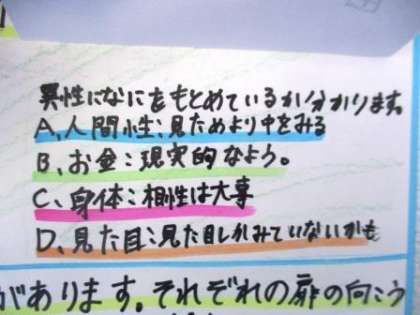 異性になにをもとめているか分かります。
A、人間性:見ためより中をみる
B、お金:現実的なよう。
C、身体:相性は大事
D、見た目:見た目しかみていないかも
があります。それぞれの扉の向こう